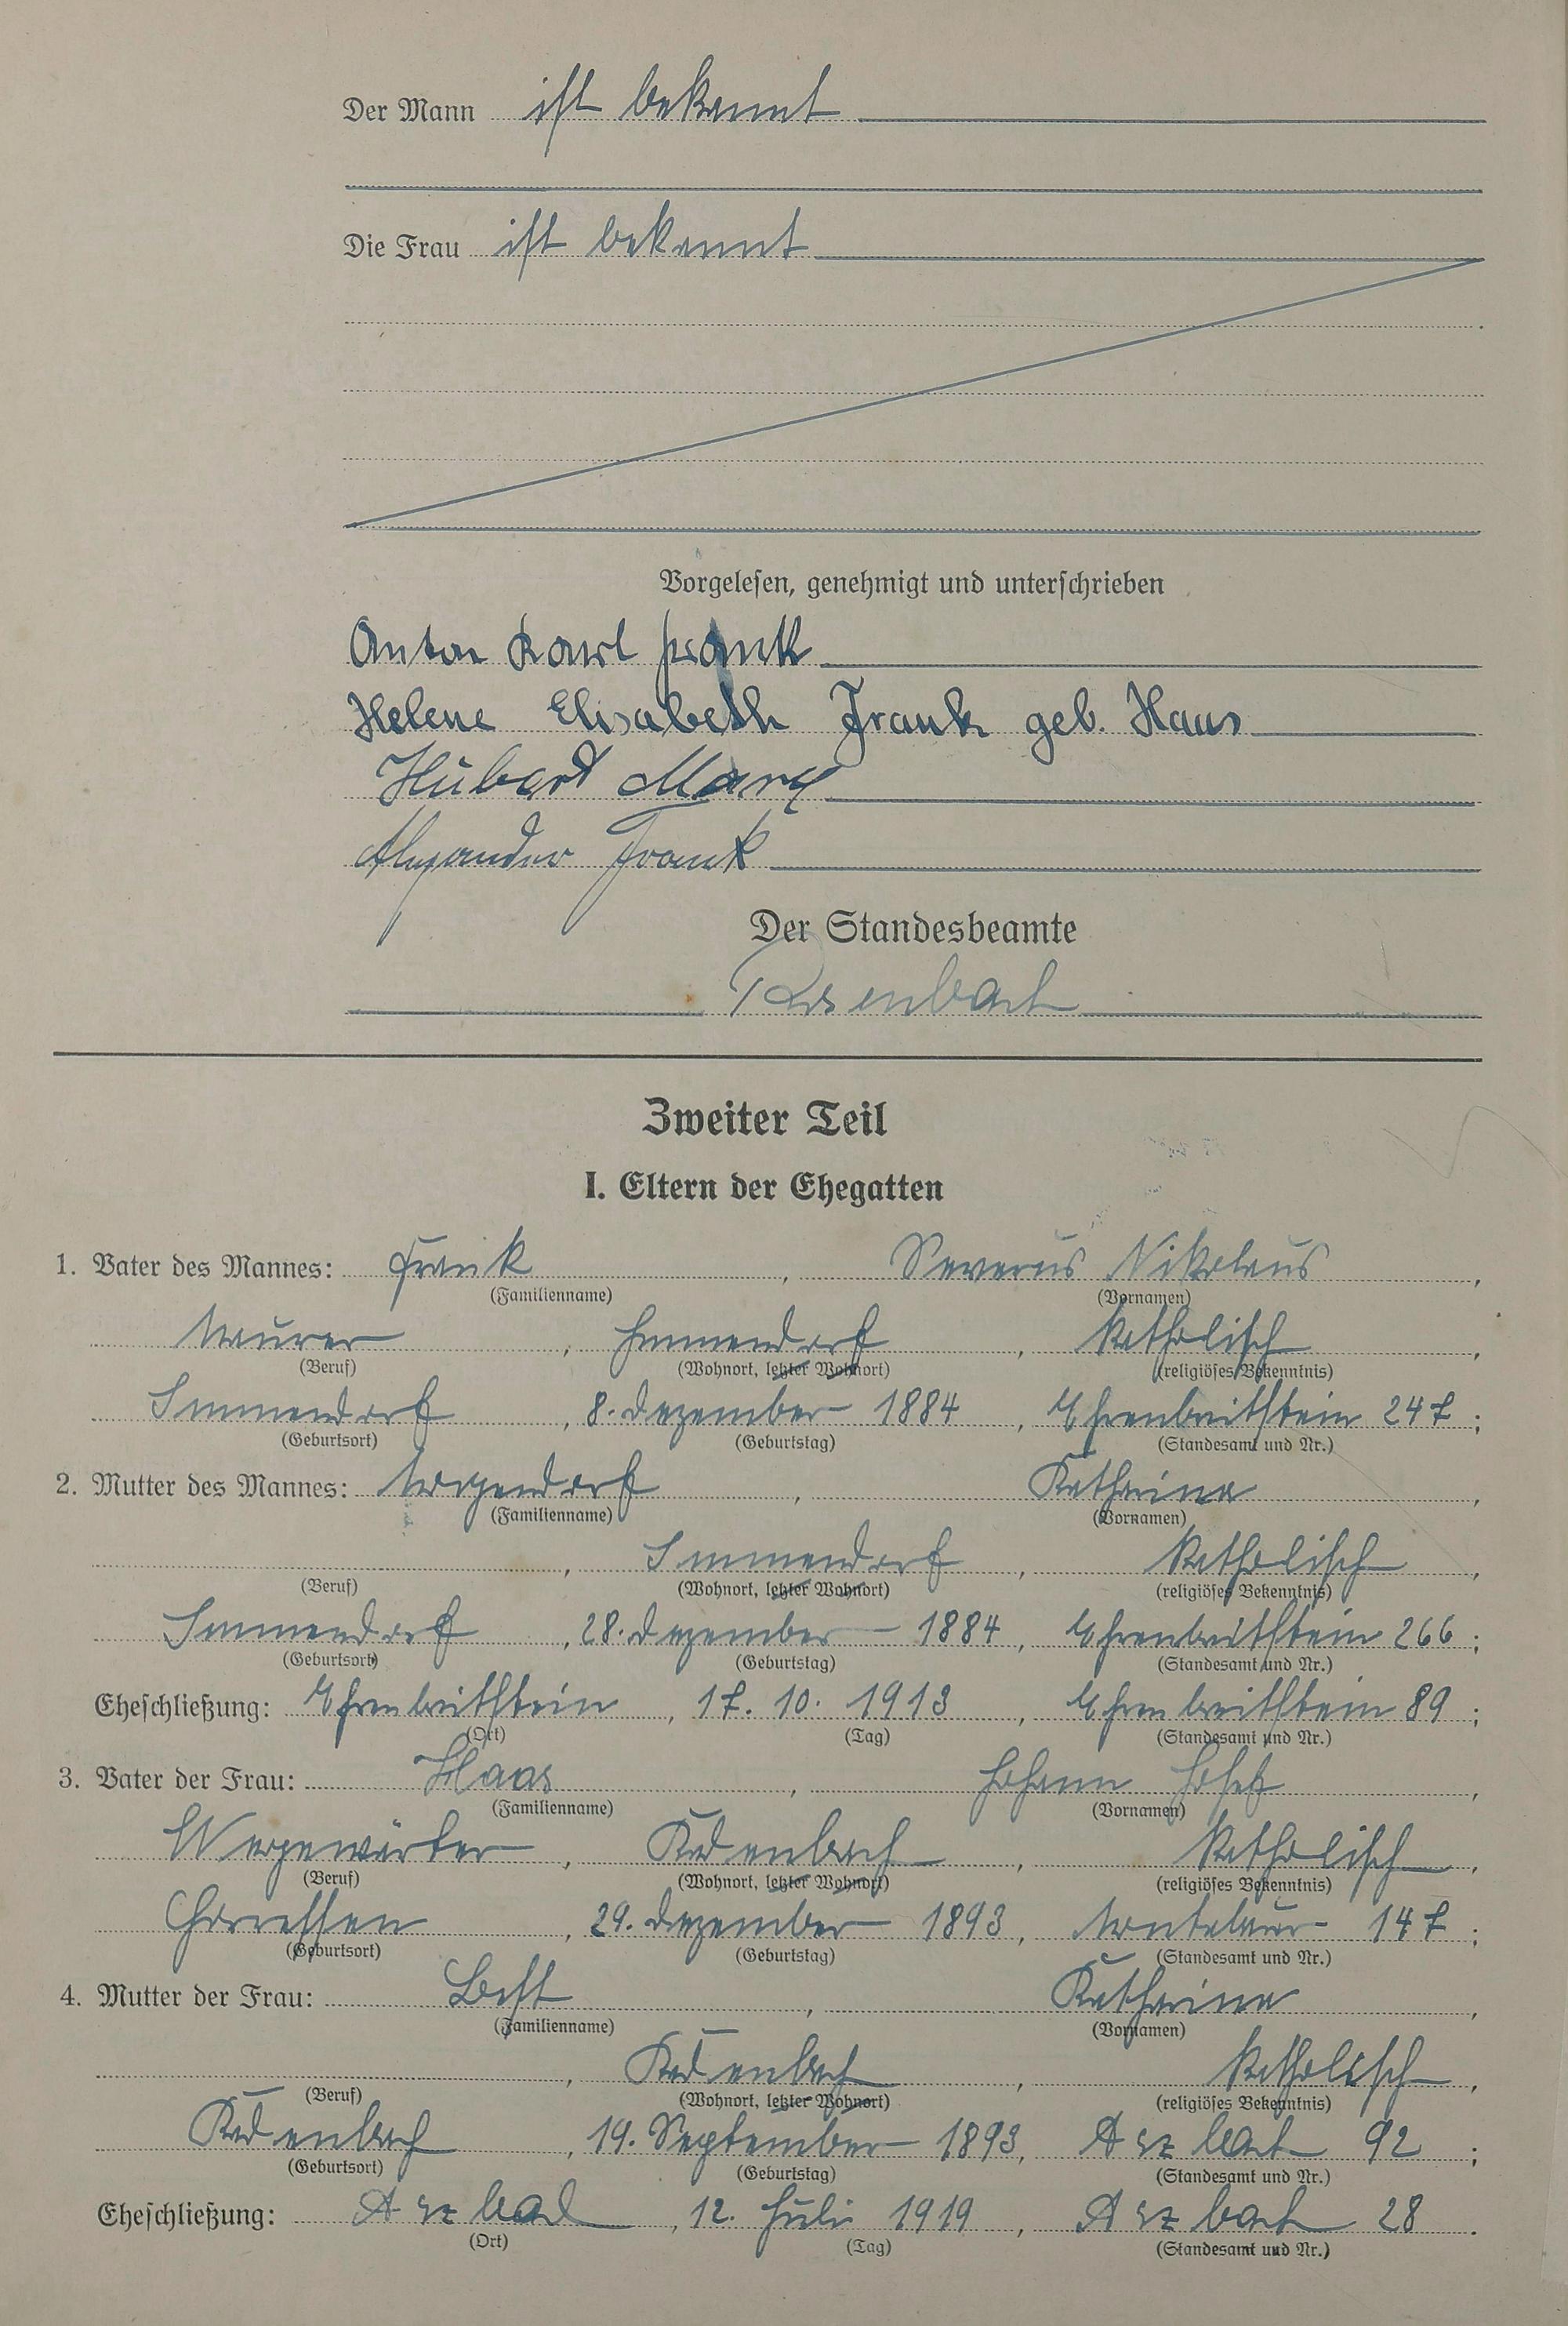 Der Mann ist bekannt
Die Frau ist bekannt
Vorgelesen, genehmigt und unterschrieben
Anton Karl Frank
Helene Elisabeth Frank geb. Haas
Hubert Marx
Alexander Frank
Der Standesbeamte
Zweiter Teil
I. Eltern der Ehegatten
1. Vater des Mannes: Frank, Severus Nikolaus,
(Familienname) (Vornamen)
Maurer, Immendorf, katholisch,
(Beruf) (Wohnort, letzter Wohnort) (religiöses Bekenntnis)
Immendorf, 8. Dezember 1884, Ehrenbreitstein 247;
(Geburtsort) (Geburtstag) (Standesamt und Nr.)
2. Mutter des Mannes: Katharina,
(Familienname) (Vornamen)
, Immendorf, katholisch,
(Beruf) (Wohnort, letzter Wohnort) (religiöses Bekenntnis)
Immendorf, 28. Dezember 1884, Ehrenbreitstein 266;
(Geburtsort) (Geburtstag) (Standesamt und Nr.)
Eheschließung: Ehrenbreitstein, 17. 10. 1913, Ehrenbreitstein 89;
(Ort) (Tag) (Standesamt und Nr.)
3. Vater der Frau: Haas, Johann Josef,
(Familienname) (Vornamen)
Wegewärter, Kadenbach, katholisch,
(Beruf) (Wohnort, letzter Wohnort) (religiöses Bekenntnis)
Horressen, 29. Dezember 1893, Montabaur 147;
(Geburtsort) (Geburtstag) (Standesamt und Nr.)
4. Mutter der Frau: Best, Katharina,
(Familienname) (Vornamen)
, Kadenbach, katholisch,
(Beruf) (Wohnort, letzter Wohnort) (religiöses Bekenntnis)
Kadenbach, 19. September 1893, Arzbach 92;
(Geburtsort) (Geburtstag) (Standesamt und Nr.)
Eheschließung: Arzbach, 12. Juli 1919, Arzbach 28.
(Ort) (Tag) (Standesamt und Nr.)